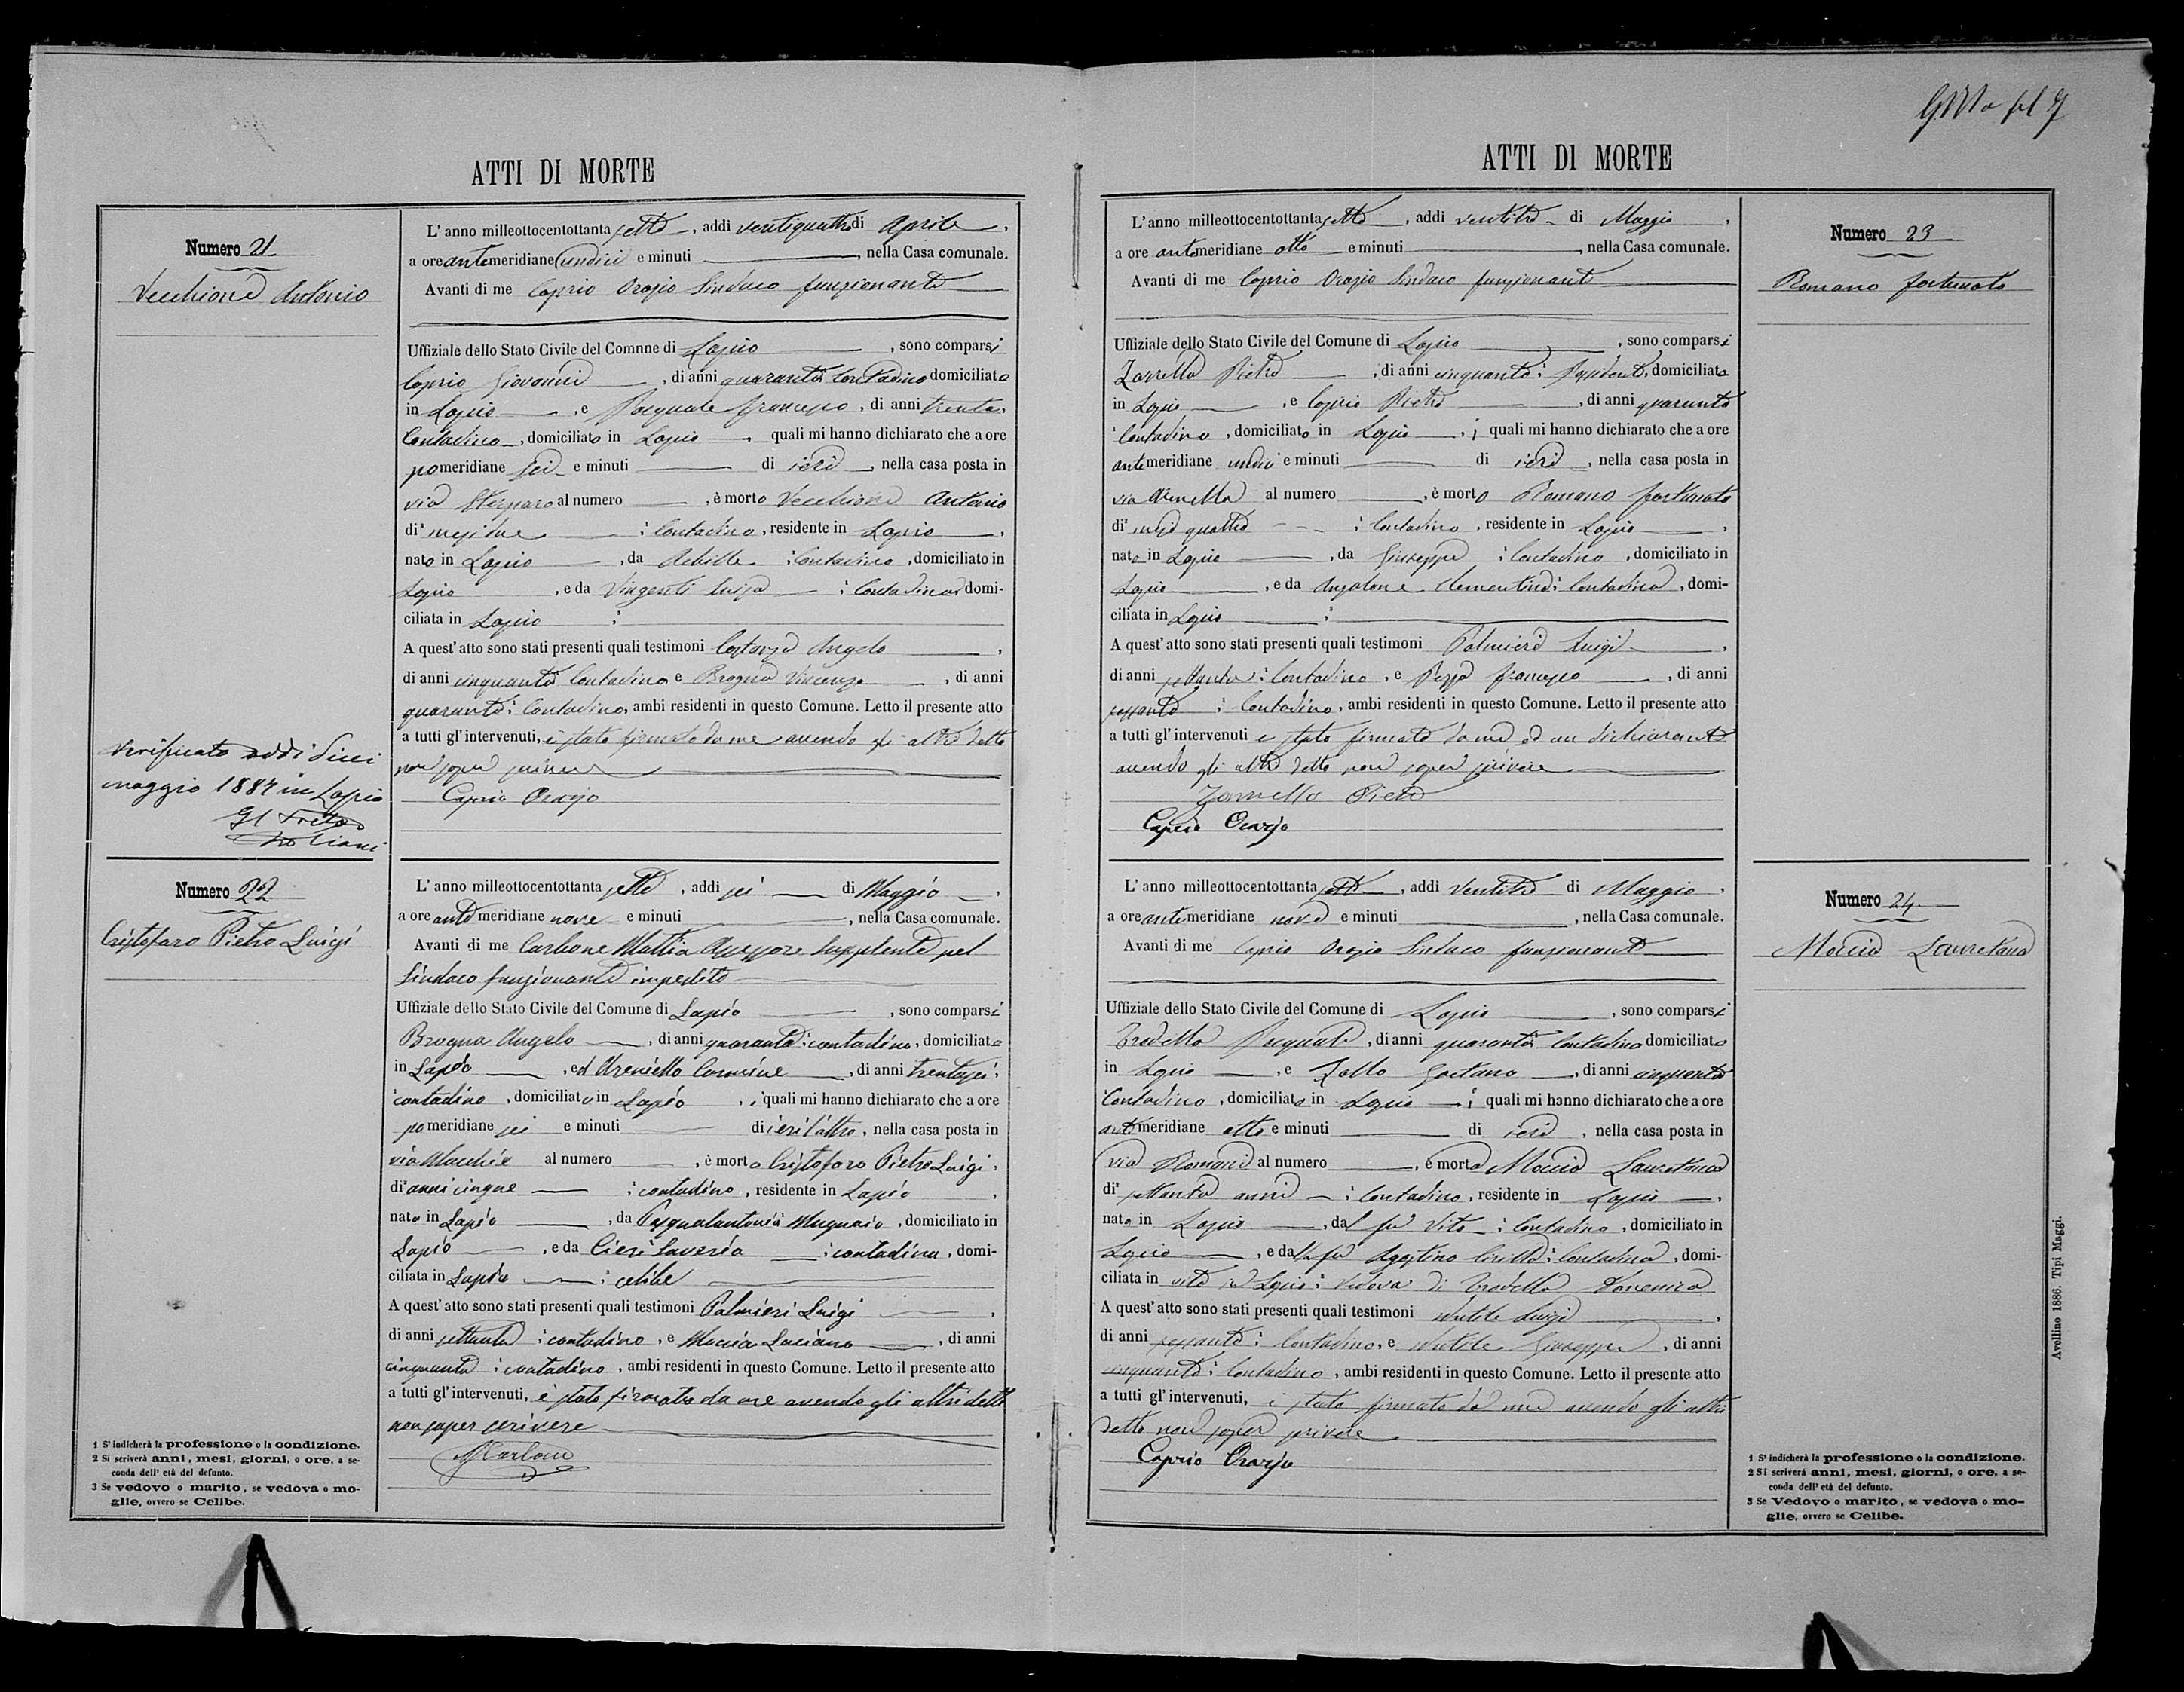 ATTI DI MORTE
Numero 21
Vecchione Antonio
L'anno milleottocentottanta sette, addi ventiquattro di Aprile,
a ore antemeridiane undici e minuti, nella Casa comunale.
Avanti di me Caprio Orazio Sindaco funzionante
Uffiziale dello Stato Civile del Comnne di Lapio, sono comparsi
Caprio Giovanni, di anni quaranta contadino domiciliato
in Lapio, e Pasquale Francesco, di anni trenta,
Contadino, domiciliato in Lapio quali mi hanno dichiarato che a ore
pomeridiane sei e minuti di ieri, nella casa posta in
via al numero, è morto Vecchione Antonio
di mesi due contadino, residente in Lapio,
nato in Lapio, da Achille contadino, domiciliato in
Lapio, e da Luisa contadina domi-
ciliata in Lapio
A quest'atto sono stati presenti quali testimoni Costanza Angelo,
di anni cinquanta Contadino e Brogna Vincenzo, di anni
quaranta contadino, ambi residenti in questo Comune. Letto il presente atto
a tutti gl'intervenuti, è stato firmato da me avendo gli altri detto
non saper scrivere
Caprio Orazio
Verificato addi dieci
maggio 1887 in Lapio
Numero 22
Cristofaro Pietro Luigi
L'anno milleottocentottanta sette, addi sei di Maggio,
a ore antemeridiane nove e minuti, nella Casa comunale.
Avanti di me Carbone Mattia Assessore Supplente pel
Sindaco funzionante impedito
Uffiziale dello Stato Civile del Comune di Lapio, sono comparsi
Brogna Angelo, di anni quaranta contadino, domiciliato
in Lapio, ed Areniello Carmine, di anni trentasei,
contadino, domiciliato in Lapio, i quali mi hanno dichiarato che a ore
pomeridiane sei e minuti di ieri l'altro, nella casa posta in
via Macchie al numero, è morto Cristofaro Pietro Luigi,
di anni cinque contadino, residente in Lapio,
nato in Lapio, da Pasqualantonio Mugnaio, domiciliato in
Lapio, e da Cieri Saveria contadina, domi-
ciliata in Lapio celibe
A quest'atto sono stati presenti quali testimoni Palmieri Luigi,
di anni settanta contadino, e Moccia Luciano, di anni
cinquanta contadino, ambi residenti in questo Comune. Letto il presente atto
a tutti gl'intervenuti, è stato firmato da me avendo gli altri detto
non saper scrivere
M Carbone
1 S'indicherà la professione o la condizione.
2 Si scriverà anni, mesi, giorni, o ore, a se-
conda dell'età del defunto.
3 Se vedovo o marito, se vedova o mo-
glie, ovvero se Celibe.
ATTI DI MORTE
Numero 23
Romano Fortunato
L'anno milleottocentottanta sette, addi ventitre di Maggio,
a ore antemeridiane otto e minuti, nella Casa comunale.
Avanti di me Caprio Orazio Sindaco funzionante
Uffiziale dello Stato Civile del Comune di Lapio, sono comparsi
Zarrella Pietro, di anni cinquanta, domiciliato
in Lapio, e Caprio Pietro, di anni quaranta
Contadino, domiciliato in Lapio, i quali mi hanno dichiarato che a ore
antemeridiane undici e minuti di ieri, nella casa posta in
via al numero, è morto Romano Fortunato
di mesi quattro contadino, residente in Lapio,
nato in Lapio, da Giuseppe contadino, domiciliato in
Lapio, e da Anzalone Clementina contadina, domi-
ciliata in Lapio
A quest'atto sono stati presenti quali testimoni Palmieri Luigi,
di anni settanta contadino, e Pizza Francesco, di anni
sessanta contadino, ambi residenti in questo Comune. Letto il presente atto
a tutti gl'intervenuti è stato firmato da me ed un dichiarante
avendo gli altri detto non saper scrivere
Zarrella Pietro
Caprio Orazio
Numero 24
Moccia Lauretana
L'anno milleottocentottanta sette, addi ventitre di Maggio,
a ore antemeridiane nove e minuti, nella Casa comunale.
Avanti di me Caprio Orazio Sindaco funzionante
Uffiziale dello Stato Civile del Comune di Lapio, sono comparsi
Pasquale, di anni quaranta contadino domiciliato
in Lapio, e Zollo Gaetano, di anni cinquanta
Contadino, domiciliato in Lapio i quali mi hanno dichiarato che a ore
antemeridiane otto e minuti di ieri, nella casa posta in
via Romani al numero, è morta Moccia Lauretana
di settanta anni contadina, residente in Lapio,
nata in Lapio, dal fu Vito contadino, domiciliato in
Lapio, e dalla fu Agostino Cirilla contadina, domi-
ciliata in vita in Lapio vedova di
A quest'atto sono stati presenti quali testimoni Nutile Luigi,
di anni sessanta contadino, e Nutile Giuseppe, di anni
cinquanta contadino, ambi residenti in questo Comune. Letto il presente atto
a tutti gl'intervenuti, è stato firmato da me avendo gli altri
detto non saper scrivere
Caprio Orazio
1 S'indicherà la professione o la condizione.
2 Si scriverà anni, mesi, giorni, o ore, a se-
conda dell'età del defunto.
3 Se Vedovo o marito, se vedova o mo-
glie, ovvero se Celibe.
Avellino 1886. Tipi Maggi.